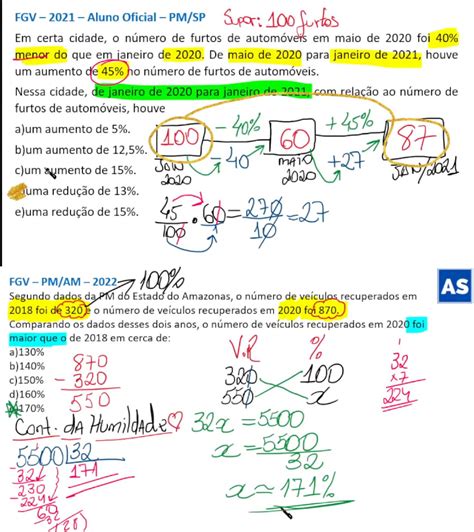 FGV – 2021 – Aluno Oficial – PM/SP
Supor: 100 furtos
Em certa cidade, o número de furtos de automóveis em maio de 2020 foi 40%
menor do que em janeiro de 2020. De maio de 2020 para janeiro de 2021, houve
um aumento de 45% no número de furtos de automóveis.
Nessa cidade, de janeiro de 2020 para janeiro de 2021, com relação ao número de
furtos de automóveis, houve
a)um aumento de 5%.
b)um aumento de 12,5%.
c)um aumento de 15%.
uma redução de 13%.
e)uma redução de 15%.
100 - 40% 60 +45% 87
-40 +27
JAN 2020
MAIO 2020
JAN/2021
45/100 . 60 = 270/10 = 27
FGV – PM/AM – 2022
100%
AS
Segundo dados da PM do Estado do Amazonas, o número de veículos recuperados em
2018 foi de 320 e o número de veículos recuperados em 2020 foi 870.
Comparando os dados desses dois anos, o número de veículos recuperados em 2020 foi
maior que o de 2018 em cerca de:
a)130%
b)140%
c)150%
d)160%
170%
870
- 320
550
V.R %
320 100
550 x
32
x7
224
Cont. DA Humildade
32x = 5500
x = 5500
32
x ≈ 171%
5500 32
171
- 32
230
- 224
60
32